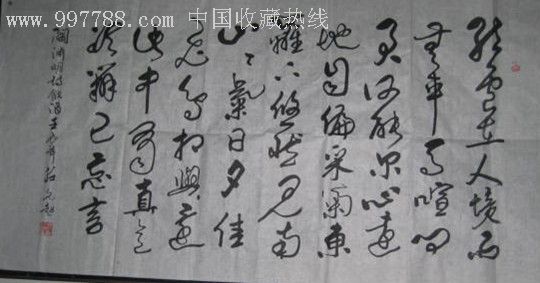 www.997788.com 中国收藏热线
结庐在人境而
無車馬喧问
君何能尔心遠
地自偏采菊東
籬下悠然见南
山々氣日夕佳
飛鸟相與還
此中有真意
欲辨已忘言
陶渊明诗饮酒